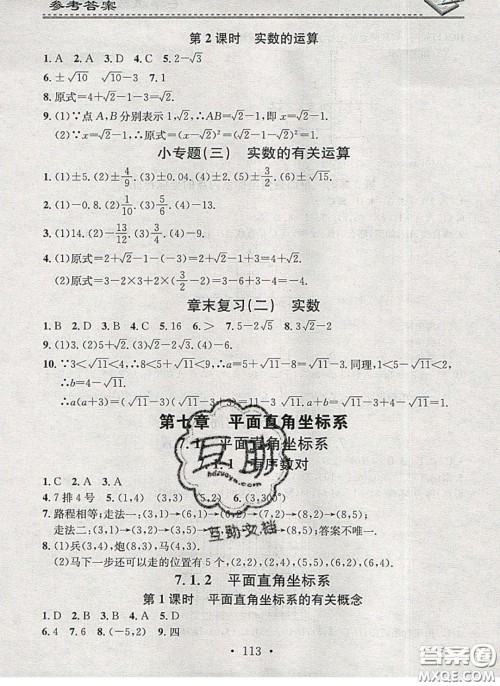 参考答案
第2课时　实数的运算
1. A　2. A　3. D　4. C　5. 2－√3
6. ±√10　√10－3　7. 1
8. 原式＝4＋√2－1－3＝√2.
9. (1)∵点A,B分别表示1,√2,∴AB＝√2－1,即x＝√2－1.
(2)∵x＝√2－1,∴原式＝(x－√2)²＝(√2－1－√2)²＝1.
小专题(三)　实数的有关运算
1. (1)±5. (2)±4/9. (3)±0.1. (4)±0.02. (5)±3/2. (6)±√15.
2. (1)－0.8. (2)1/10. (3)5/6. (4)－13.
3. (1)14. (2)－13/12. (3)3/4. (4)－9.
4. (1)原式＝√2＋1－(－2)＋√2－1＝√2＋1＋2＋√2－1＝2＋2√2.
(2)原式＝3－2×3＋2×(3/2－2)＝3－6＋3－4＝－4.
章末复习(二)　实数
1. B　2. D　3. B　4. C　5. 16　6. ＞　7. 5－2√5　8. 3√2－2
9. (1)3. (2)5＋√2. (3)－1/2. (4)0.
10. ∵3＜√11＜4,∴8＜5＋√11＜9,∴a＝5＋√11－8＝√11－3. 同理,1＜5－√11＜2,
∴b＝4－√11.
∴a(a＋3)＝(√11－3)(√11－3＋3)＝√11(√11－3)＝11－3√11.
第七章　平面直角坐标系
7.1　平面直角坐标系
1.1　有序数对
1. C　2. A　3. A
4. 7排4号　5. (1,4)　(3,3)　(5,2)　6. (3,300°)
7. 路程相等;走法一:(3,1)→(6,1)→(6,2)→(7,2)→(8,2)→(8,5);
走法二:(3,1)→(3,2)→(3,5)→(8,5);答案不唯一.
8. (1)兵(3,4),炮(8,3),马(4,3).
(2)马下一步还可以走的位置有5个,(2,2),(2,4),(5,1),(6,2),(6,4).
7.1.2　平面直角坐标系
第1课时　平面直角坐标系的有关概念
1. D　2. B　3. A　4. D　5. A
6. 4　7. 6　8. (－5,2)　9. 四
· 113 ·
互助
hdzuoye.com
互助文档
答案圈
MXQE.COM